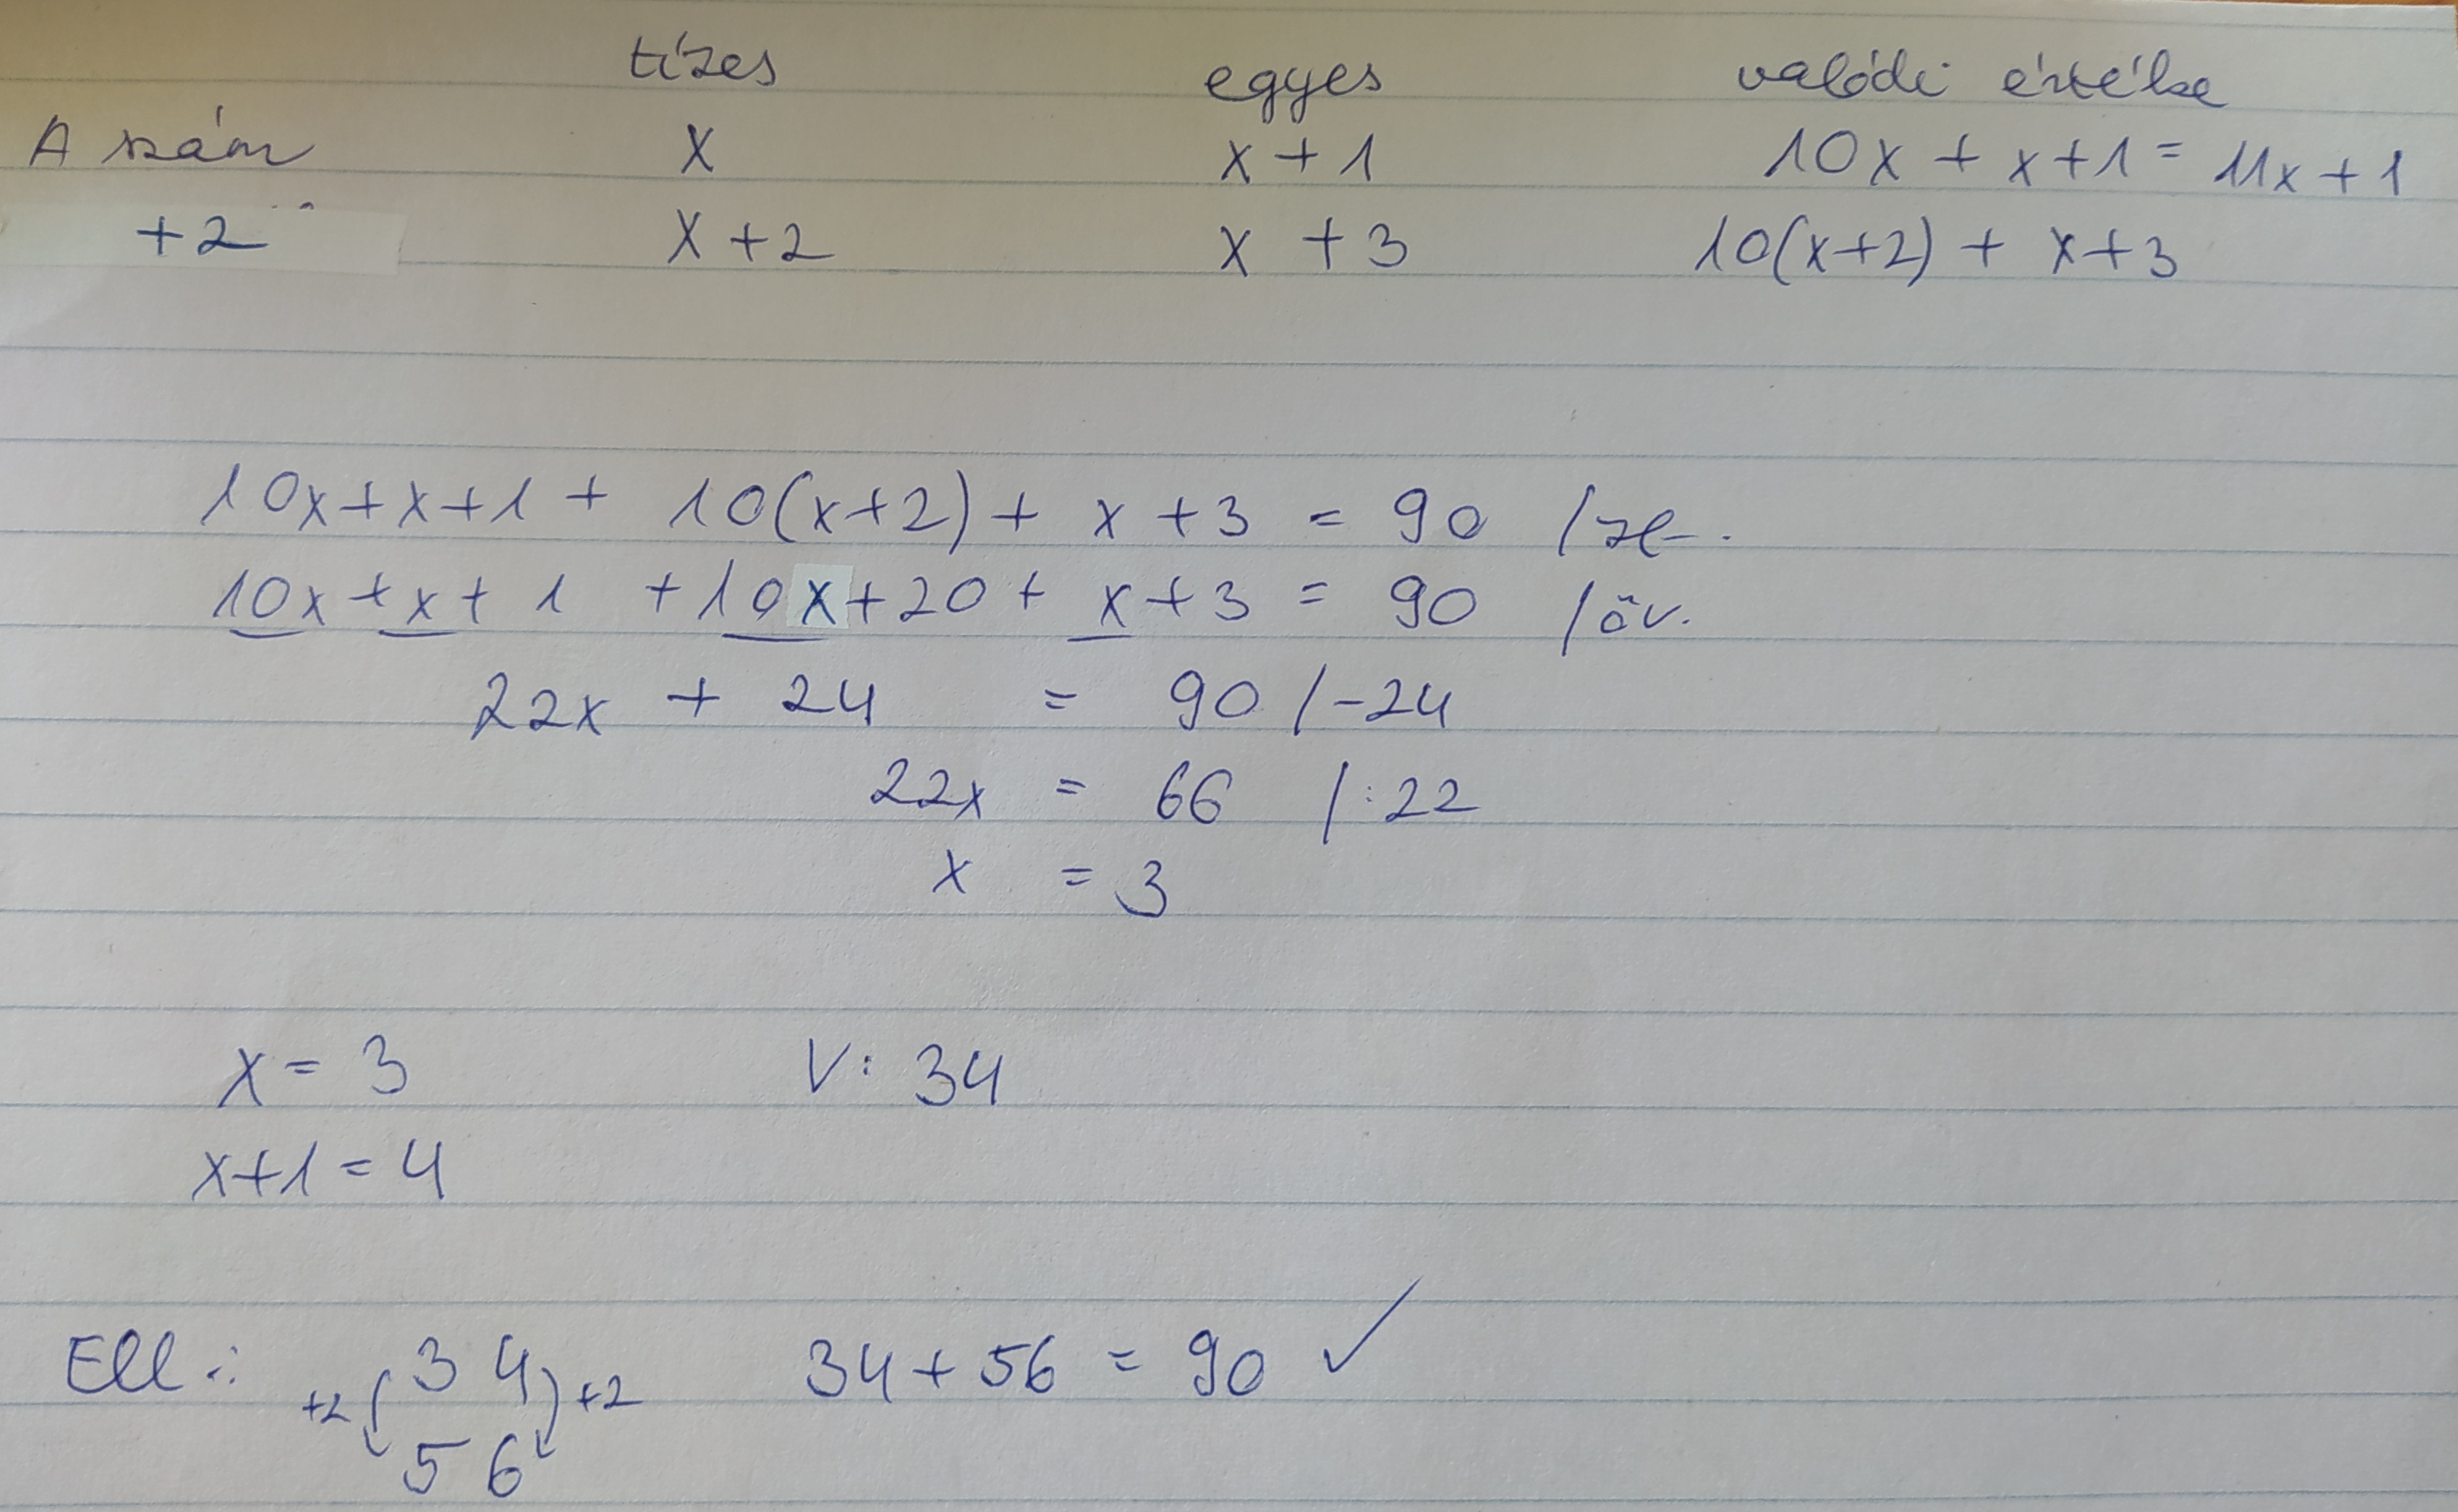 tízes egyes valódi értéke
A szám x x+1 10x + x+1 = 11x+1
+2 x+2 x+3 10(x+2) + x+3
10x+x+1 + 10(x+2) + x+3 = 90 /ze.
10x+x+1 +10x+20+ x+3 = 90 /öv.
22x + 24 = 90 /-24
22x = 66 /:22
x = 3
x = 3 V: 34
x+1 = 4
Ell.: 34 34+56 = 90 ✓
+2 +2
56